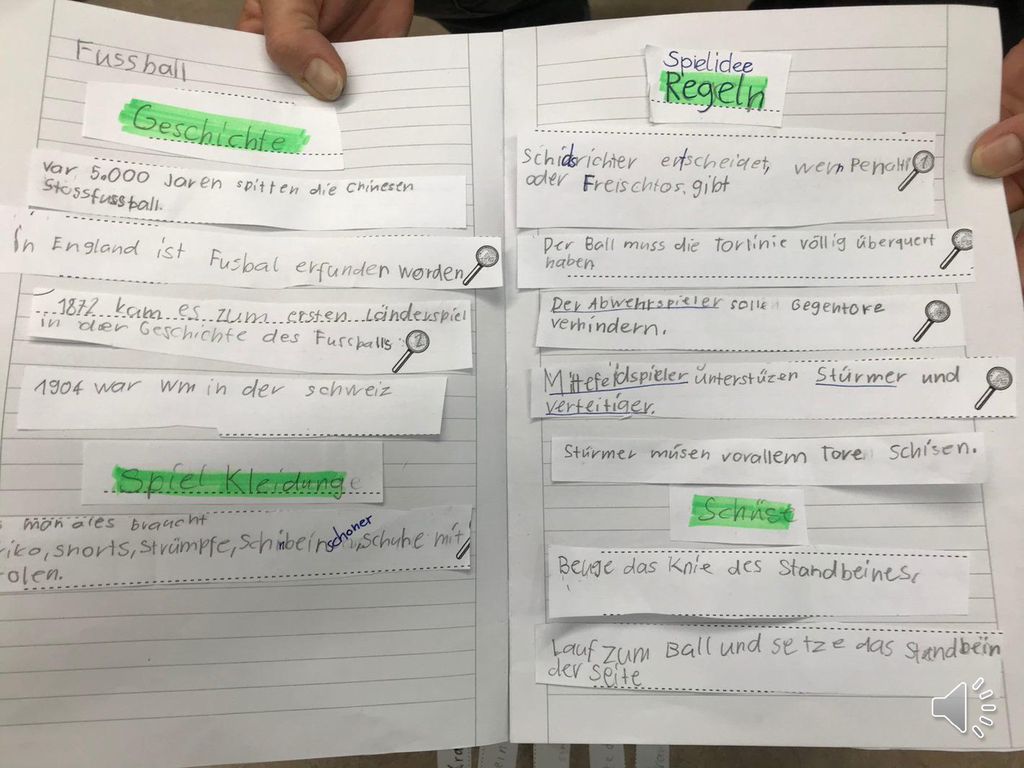 Fussball
Geschichte
var 5.000 Jaren spitten die Chinesen
Stossfussball.
In England ist Fusbal erfunden worden
1872 kam es zum ersten Länderspiel
in der Geschichte des Fussballs
1904 war Wm in der schweiz
Spiel Kleidunge
man ales braucht
riko, shorts, Strümpfe, Schinbeinschoner, Schuhe mit
olen.
Spielidee
Regeln
Schidsrichter entscheidet, wenn Penalti
oder Freischtos gibt
Der Ball muss die Torlinie völlig überquert
haben
Der Abwehrspieler solle Gegentore
verhindern.
Mittefeldspieler unterstüzen Stürmer und
verteitiger.
Stürmer müsen vorallem Tore schisen.
Schüst
Beuge das Knie des Standbeines,
Lauf zum Ball und setze das Standbein
der Seite